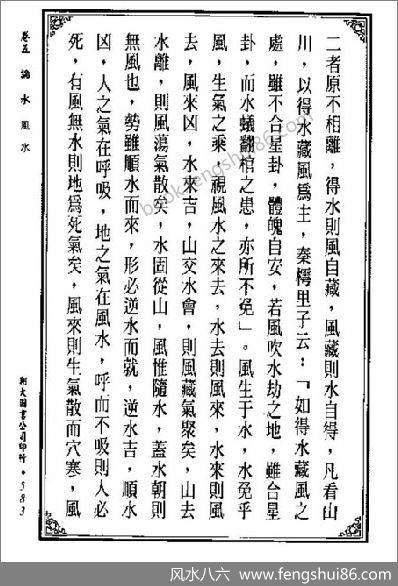 二者原不相離，得水則風自藏，風藏則水自得，凡看山
川，以得水藏風爲主，秦樗里子云：「如得水藏風之
處，雖不合星卦，體魄自安，若風吹水劫之地，雖合星
卦，而水蟻翻棺之患，亦所不免」。風生于水，水免乎
風，生氣之乘，視風水之來去，水去則風來，水來則風
去，風來凶，水來吉，山交水會，則風藏氣聚矣，山去
水離，則風蕩氣散矣，水固從山，風惟隨水，蓋水朝則
無風也，勢雖順水而來，形必逆水而就，逆水吉，順水
凶，人之氣在呼吸，地之氣在風水，呼而不吸則人必
死，有風無水則地爲死氣矣，風來則生氣散而穴寒，風
卷五 論水 風水
翔大圖書公司印行·583
book.fengshui86.com
风水八六 - www.fengshui86.com